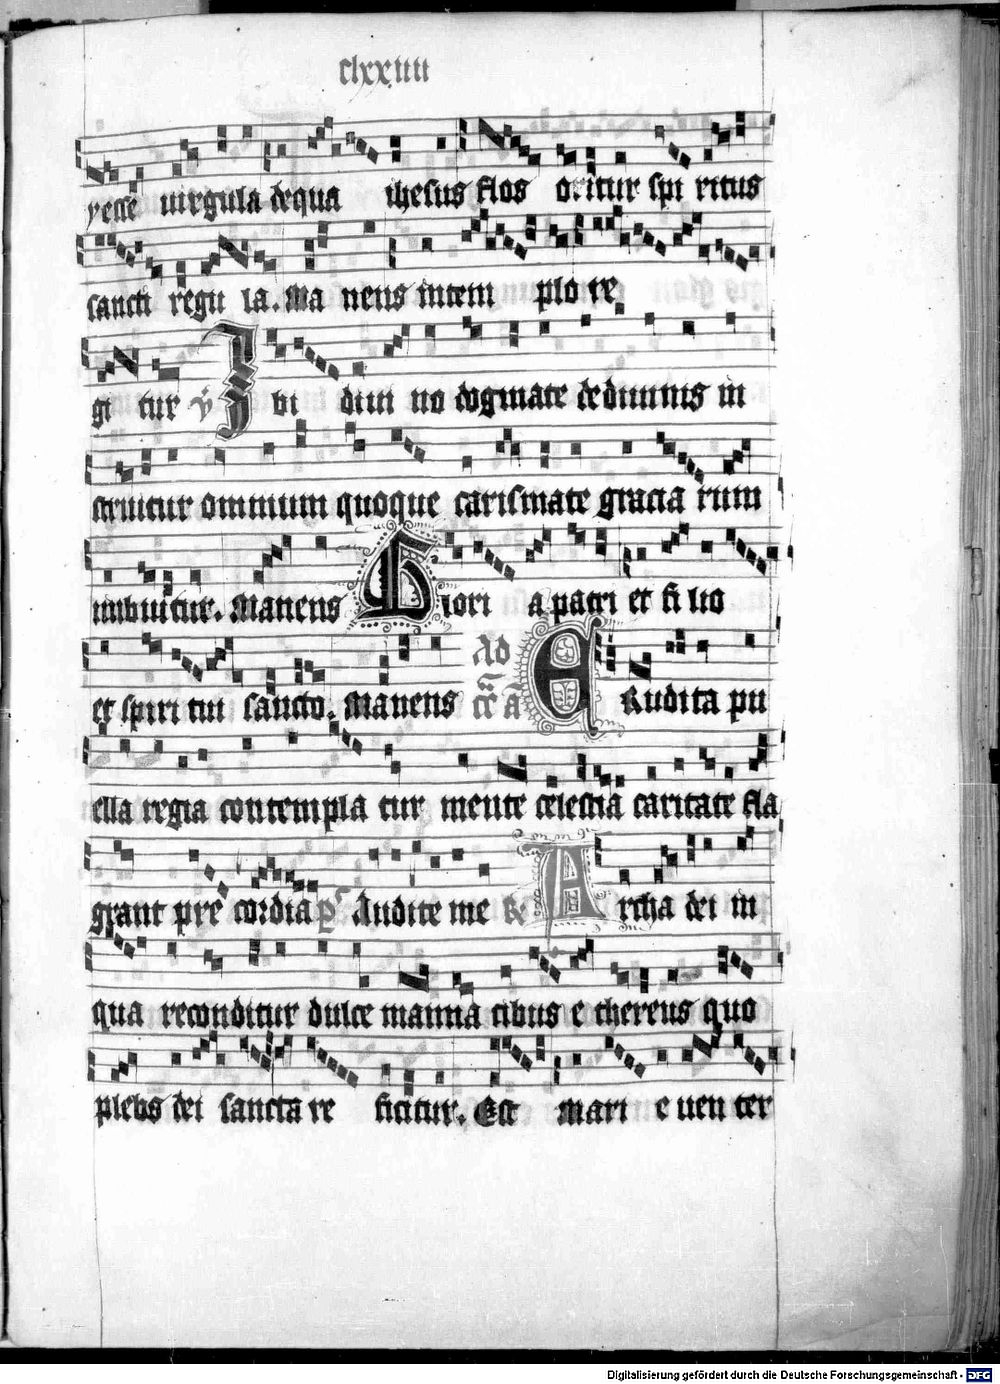 clxxiiii
yesse uirgula dequa ihesus flos oritur spi ritus
sancti regu la. ma nens intem plo re
gi tur v̓ I bi diui no dogmate dediuinis in
struitur omnium quoque carismate gracia rum
imbuitur. Manens Glori a patri et fi lio
et spiri tui sancto. Manens Ad ce a ERudita pu
ella regia contempla tur mente celestia caritate fla
grant pre cordia ps Audite me R Archa dei in
qua reconditur dulce manna cibus e thereus quo
plebs dei sancta re ficitur. Est mari e uen ter
Digitalisierung gefördert durch die Deutsche Forschungsgemeinschaft - DFG